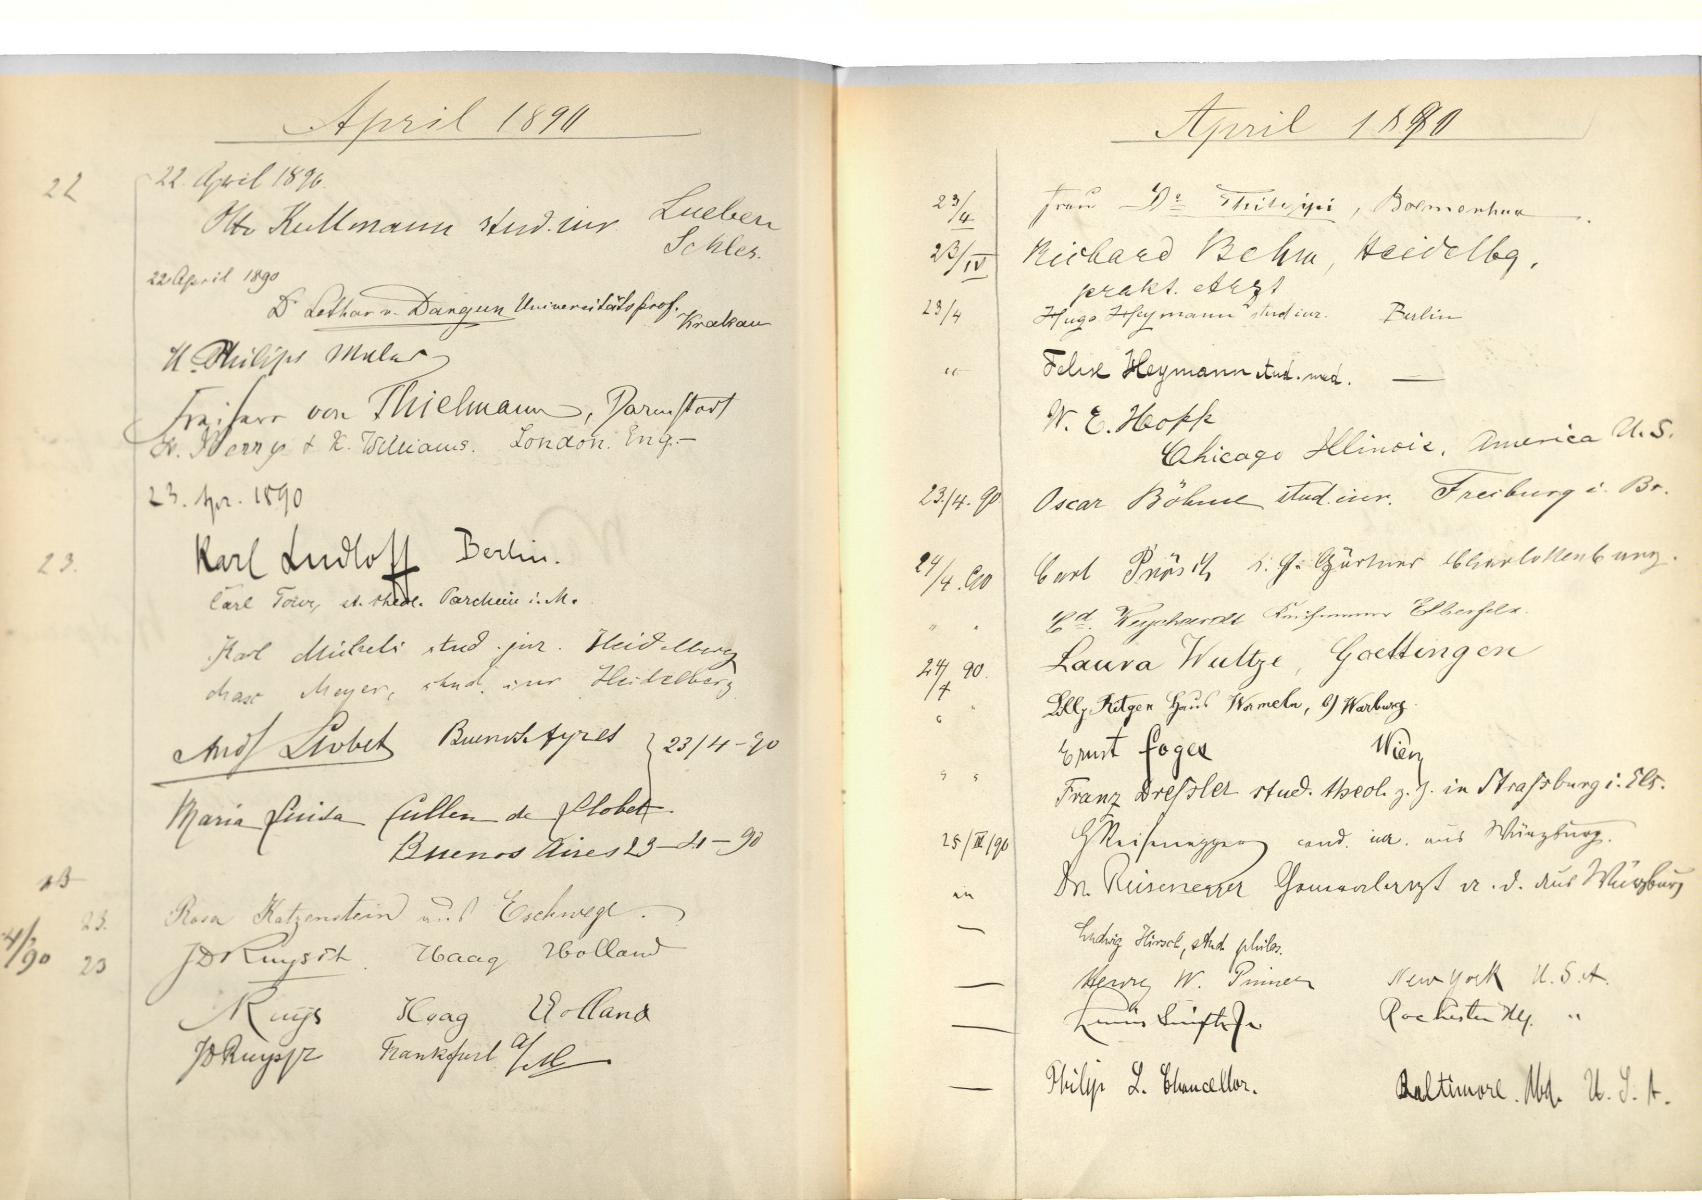 April 1890
22
22. April 1890.
Otto Kullmann stud. iur Lueben
Schles.
22 April 1890
Dr Lothar v. Dargun Universitätsprof.
Krakau
H. Philips Maler
Freiherr von Thielmann, Darmstadt
Berry & K. Williams. London. Eng.
23. Apr. 1890
23.
Karl Ludloff Berlin.
Carl st. theol. Parchim i. M.
Karl Michels stud. jur. Heidelberg
Max Meyer, stud. iur Heidelberg
Llobet Buenos Ayres 23/4-90
Maria Luisa Cullen de Llobet.
Buenos Aires 23-4-90
23
23. Rosa Katzenstein aus Eschwege.
4/90 23 Haag Holland
Ruys Haag Holland
Frankfurt a/M
April 1890
23/4 Frau Dr
23/IV Richard Behm, Heidelbg,
prakt. Arzt
23/4 Hugo Heymann stud iur. Berlin
" Felix Heymann stud. med. —
W. E. Hopp
Chicago Illinois, America U.S.
23/4. 90 Oscar Böhme stud. iur. Freiburg i. Br.
24/4. 90 Carl Gärtner Charlottenburg.
" " Ed. Weychardt Kaufmann Elberfeld.
24/4 90. Laura Wultze, Goettingen
" " Lilly Ritgen Haus Wormeln, b/ Warburg.
Ernst Foges Wien
" " Franz Dressler stud. theol. z. Z. in Strassburg i. Els.
25/IV 90 cand. iur. aus Würzburg.
" Dr. Reisenegger Generalarzt a. D. aus Würzburg
— Ludwig Hirsch, stud philos.
— Henry W. New York U.S.A.
— Rochester NY. "
— Philip L. Chancellor. Baltimore. Md. U.S.A.